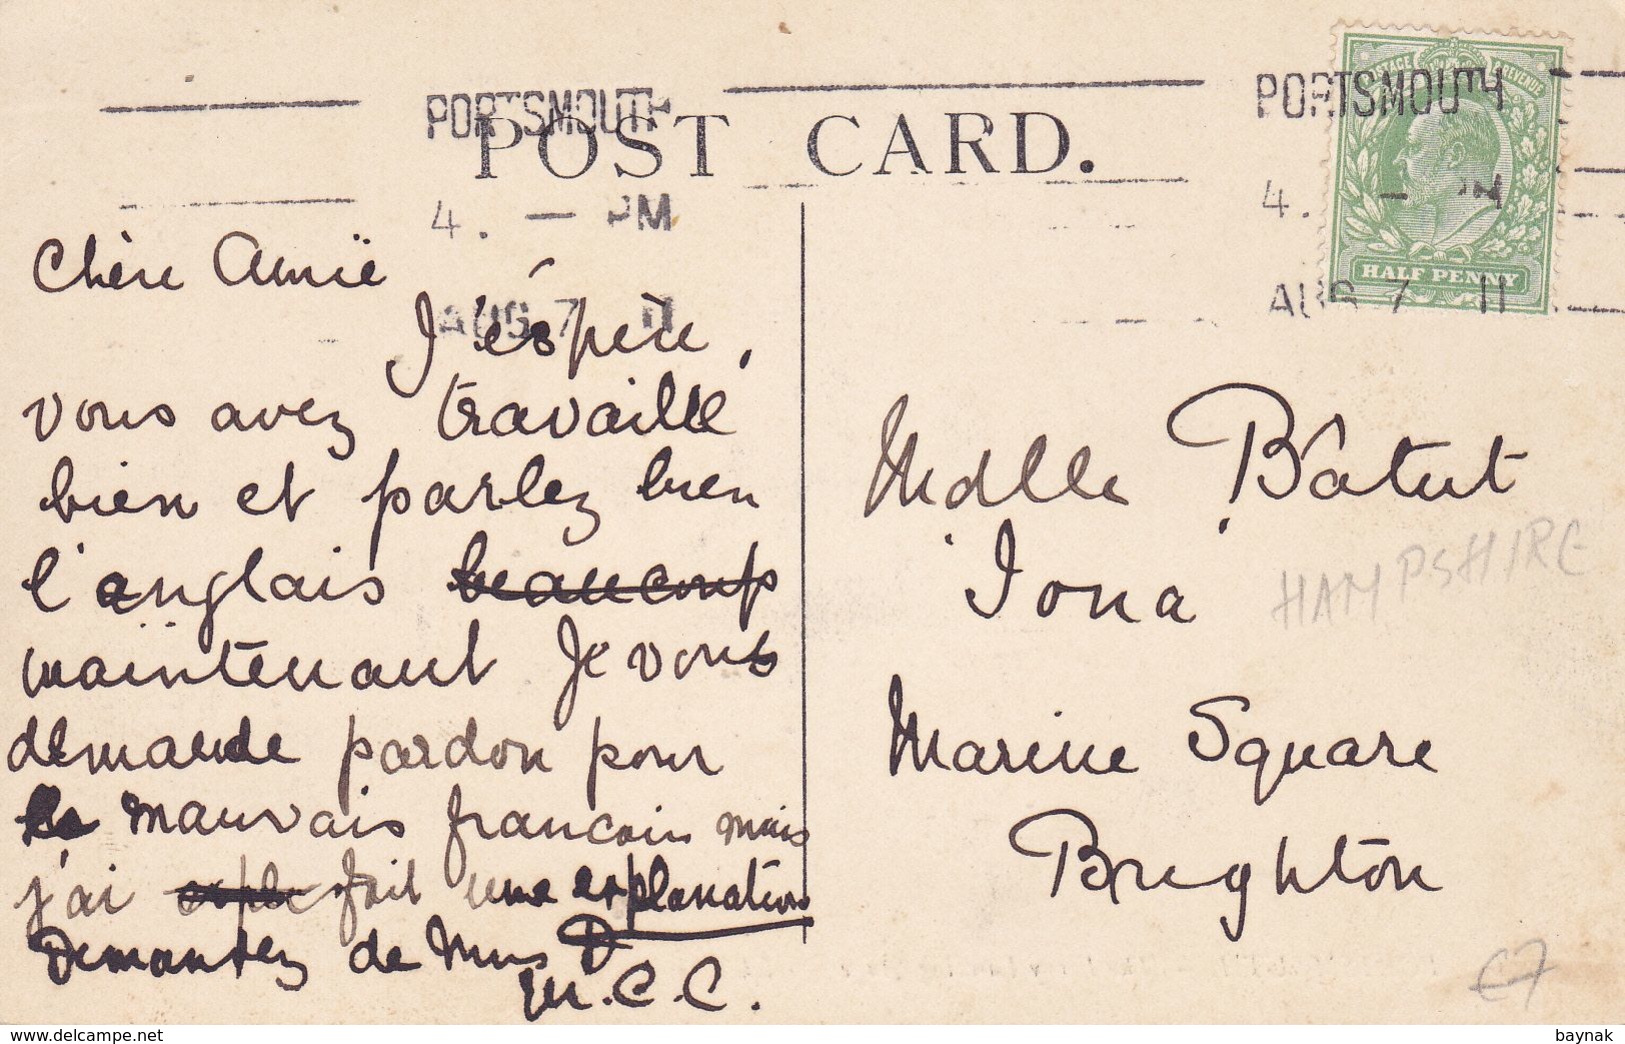 PORTSMOUTH
4. — PM
AUG 7 11
POST CARD.
PORTSMOUTH
4. — PM
AUG 7 11
POSTAGE REVENUE
HALF PENNY
Chère Amië
J'éspère,
vous avez travaillé
bien et parlez bien
l'anglais beaucoup
maintenant Je vous
demande pardon pour
mauvais francain mais
j'ai fait une explanation
Demandez de Mrs D
M.C.C.
Mdlle Bâtut
Iona
HAMPSHIRE
Marine Square
Brighton
£7
baynak